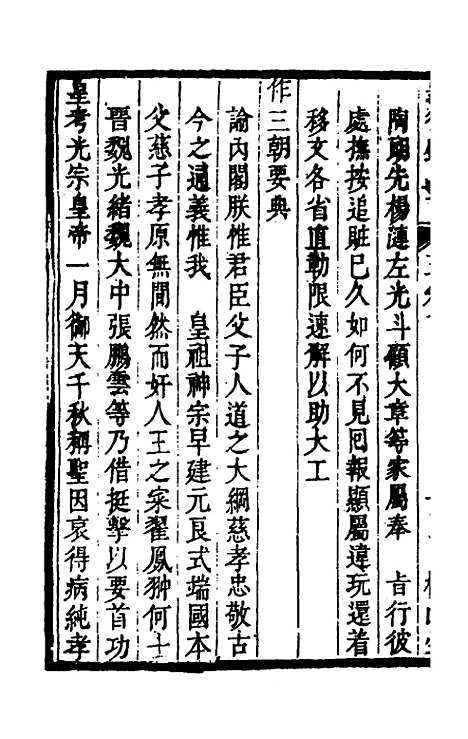 陶朗先楊漣左光斗顧大章等家屬奉　旨行彼
處撫按追贓已久如何不見囘報顯屬違玩還着
移文各省直勒限速解以助大工
作三朝要典
諭內閣朕惟君臣父子人道之大綱慈孝忠敬古
今之通義惟我　皇祖神宗早建元良式端國本
父慈子孝原無間然而奸人王之寀翟鳳翀何士
晉魏光緒魏大中張鵬雲等乃借挺擊以要首功
皇考光宗皇帝一月御天千秋稱聖因哀得病純孝